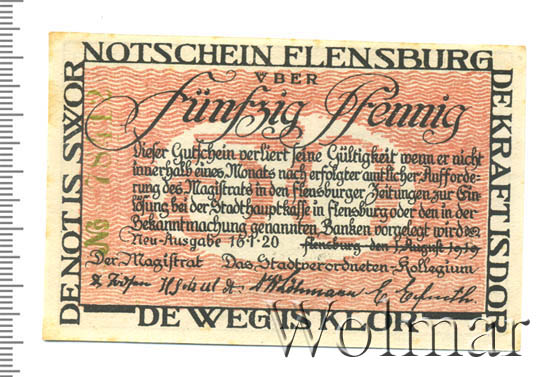 NOTSCHEIN FLENSBURG
ÜBER
Fünfzig Pfennig
Dieser Gutschein verliert seine Gültigkeit wenn er nicht
innerhalb eines Monats nach erfolgter amtlicher Aufforde-
rung des Magistrats in den Flensburger Zeitungen zur Ein-
lösung bei der Stadthauptkasse in Flensburg oder den in der
Bekanntmachung genannten Banken vorgelegt wird.
Neu-Ausgabe 16·1·20 Flensburg den 1. August 1919
Der Magistrat Das Stadtverordneten-Kollegium
DE NOT IS SWOR
DE WEG IS KLOR
DE KRAFT IS DOR
Wolmar